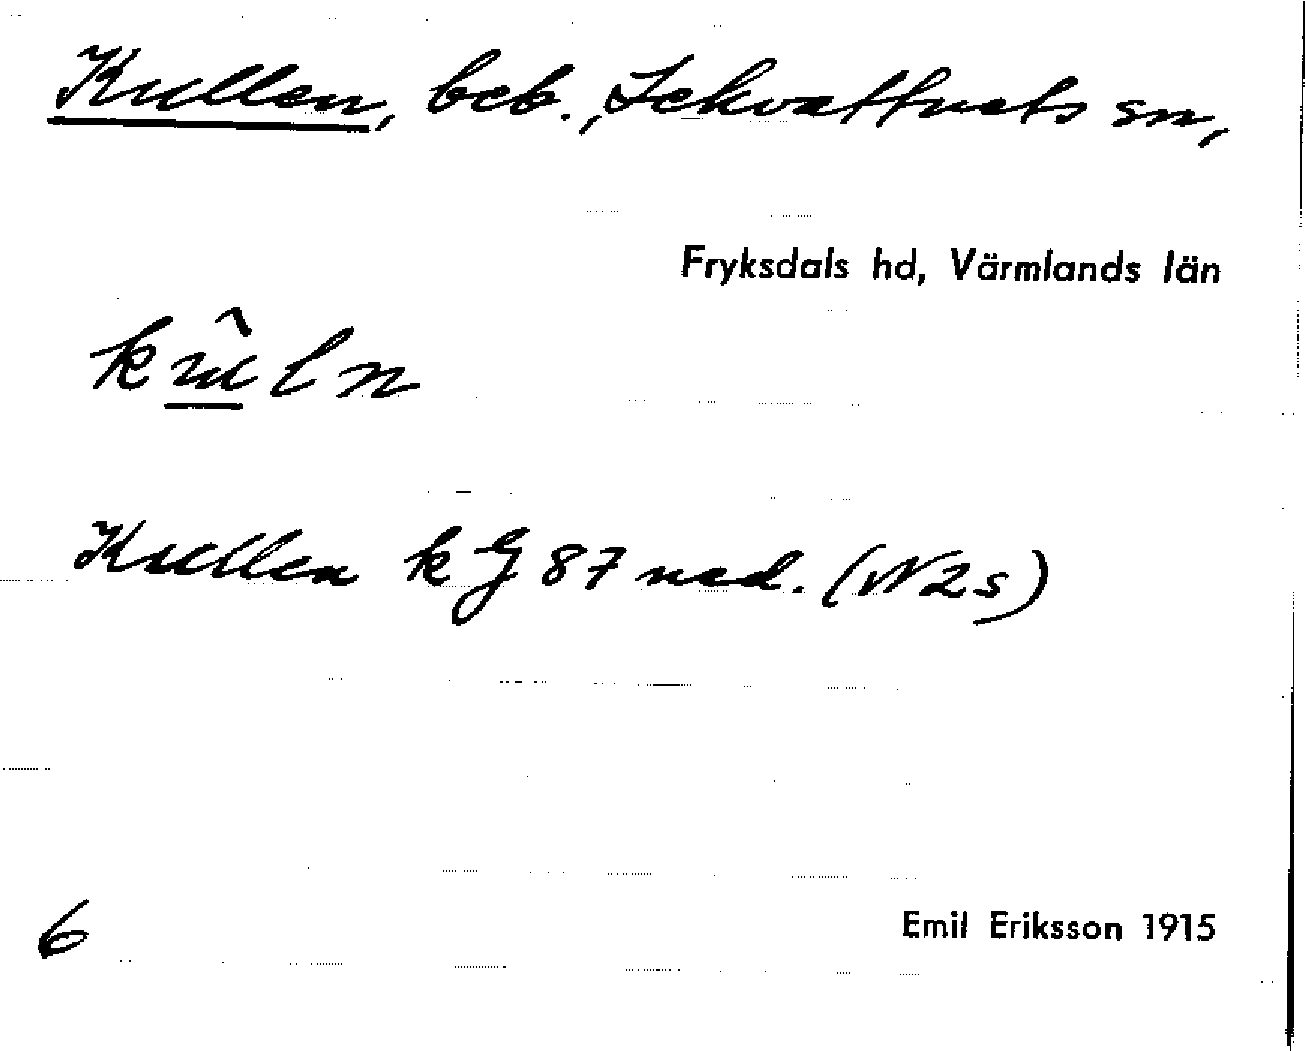 Kullen, beb., Lekvattnets sn,
Fryksdals hd, Värmlands län
Kullen k G 87 ned. (VV2s)
6
Emil Eriksson 1915